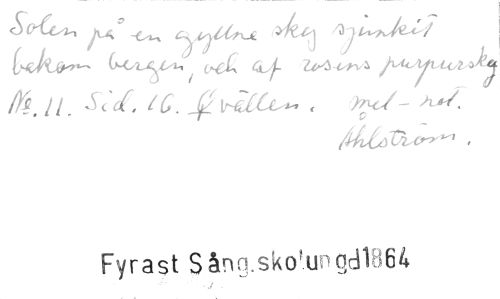 Solen på en gyllne sky sjunkit
bakom bergen, och af rosens purpursky
No. 11. Sid. 16. Qvällen. mel-not.
Åhlström.
Fyrast Sång.skolungd1864